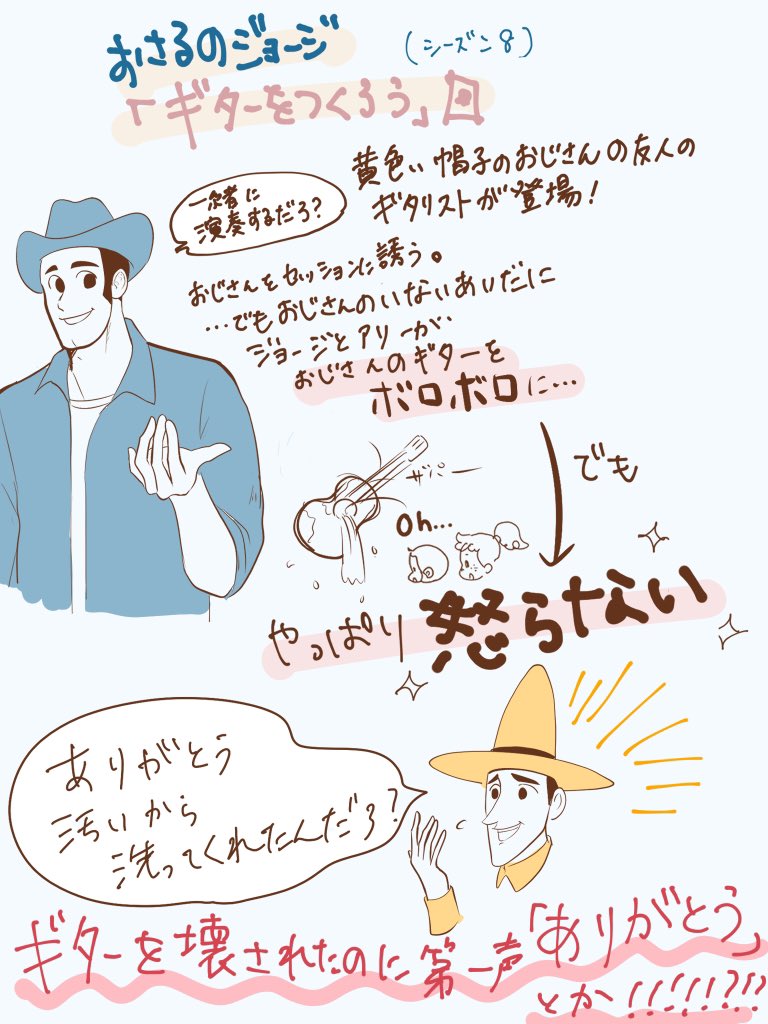 おさるのジョージ
(シーズン8)
「ギターをつくろう」回
黄色い帽子のおじさんの友人の
ギタリストが登場!
一緒に
演奏するだろ?
おじさんをセッションに誘う。
…でもおじさんのいないあいだに
ジョージとアリーが、
おじさんのギターを
ボロボロに…
でも
ザパー
oh…
やっぱり怒らない
ありがとう
汚いから
洗ってくれたんだろ?
ギターを壊されたのに第一声「ありがとう」
とか!!!!?!!